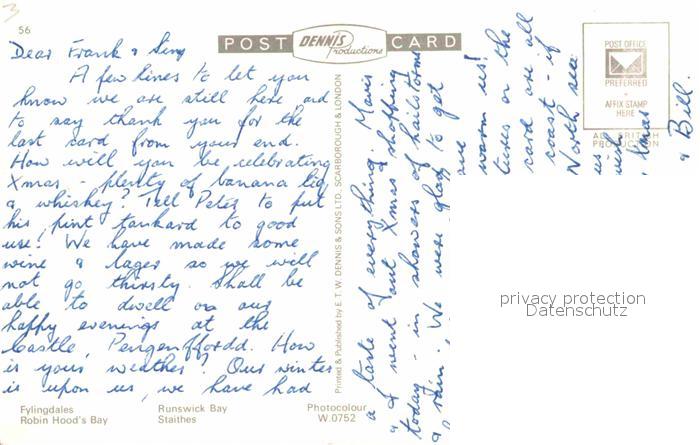 56
POST DENNIS Productions CARD
Dear Frank &
A few lines to let you
know we are still here and
to say thank you for the
last card from your end.
How will you be celebrating
Xmas - plenty of banana liq
& whiskey? Tell Peter to put
his pint tankard to good
use! We have made some
wine & lager so we will
not go thirsty. Shall be
able to dwell on our
happy evenings at the
Castle, Pengenffordd. How
is your weather? Our winter
is upon us, we have had
a taste of everything Mavis
& I went out Xmas shopping
today - in showers of hailstorms
& rain. We were glad to get
warm us!
on the
card are all
coast - if
North sea
us
& Bill.
Printed & Published by E. T. W. DENNIS & SONS LTD. SCARBOROUGH & LONDON
POST OFFICE
PREFERRED
AFFIX STAMP
HERE
A
PRODUCTION
privacy protection
Datenschutz
Fylingdales Runswick Bay Photocolour
Robin Hood's Bay Staithes W.0752